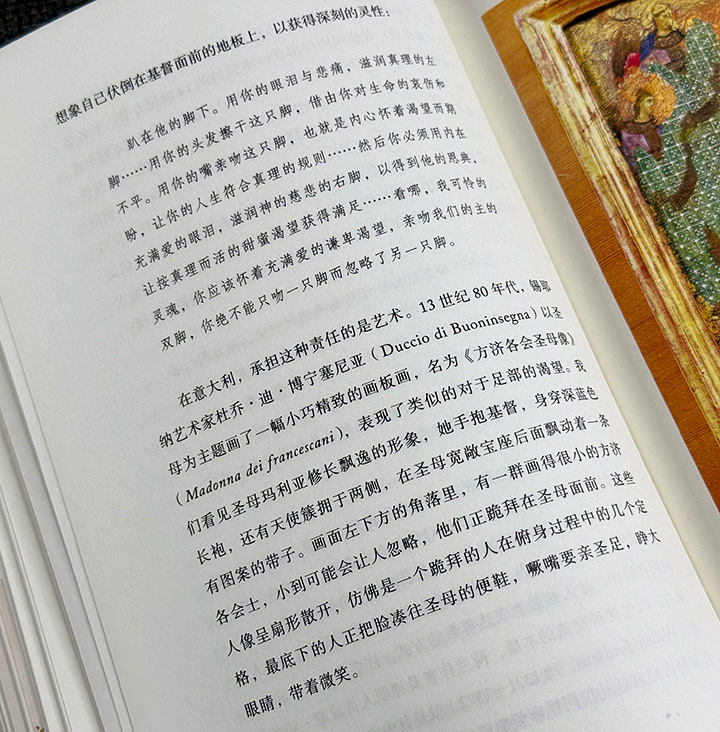 想象自己伏倒在基督面前的地板上，以获得深刻的灵性：
趴在他的脚下。用你的眼泪与悲痛，滋润真理的左
脚……用你的头发擦干这只脚，借由你对生命的哀伤和
不平。用你的嘴亲吻这只脚，也就是内心怀着渴望而期
盼，让你的人生符合真理的规则……然后你必须用内在
充满爱的眼泪，滋润神的慈悲的右脚，以得到他的恩典，
让按真理而活的甜蜜渴望获得满足……看哪，我可怜的
灵魂，你应该怀着充满爱的谦卑渴望，亲吻我们的主的
双脚，你绝不能只吻一只脚而忽略了另一只脚。
在意大利，承担这种责任的是艺术。13 世纪 80 年代，锡耶
纳艺术家杜乔·迪·博宁塞尼亚（Duccio di Buoninsegna）以圣
母为主题画了一幅小巧精致的画板画，名为《方济各会圣母像》
（Madonna dei francescani），表现了类似的对于足部的渴望。我
们看见圣母玛利亚修长飘逸的形象，她手抱基督，身穿深蓝色
长袍，还有天使簇拥于两侧，在圣母宽敞宝座后面飘动着一条
有图案的带子。画面左下方的角落里，有一群画得很小的方济
各会士，小到可能会让人忽略，他们正跪拜在圣母面前。这些
人像呈扇形散开，仿佛是一个跪拜的人在俯身过程中的几个定
格，最底下的人正把脸凑往圣母的便鞋，噘嘴要亲圣足，睁大
眼睛，带着微笑。